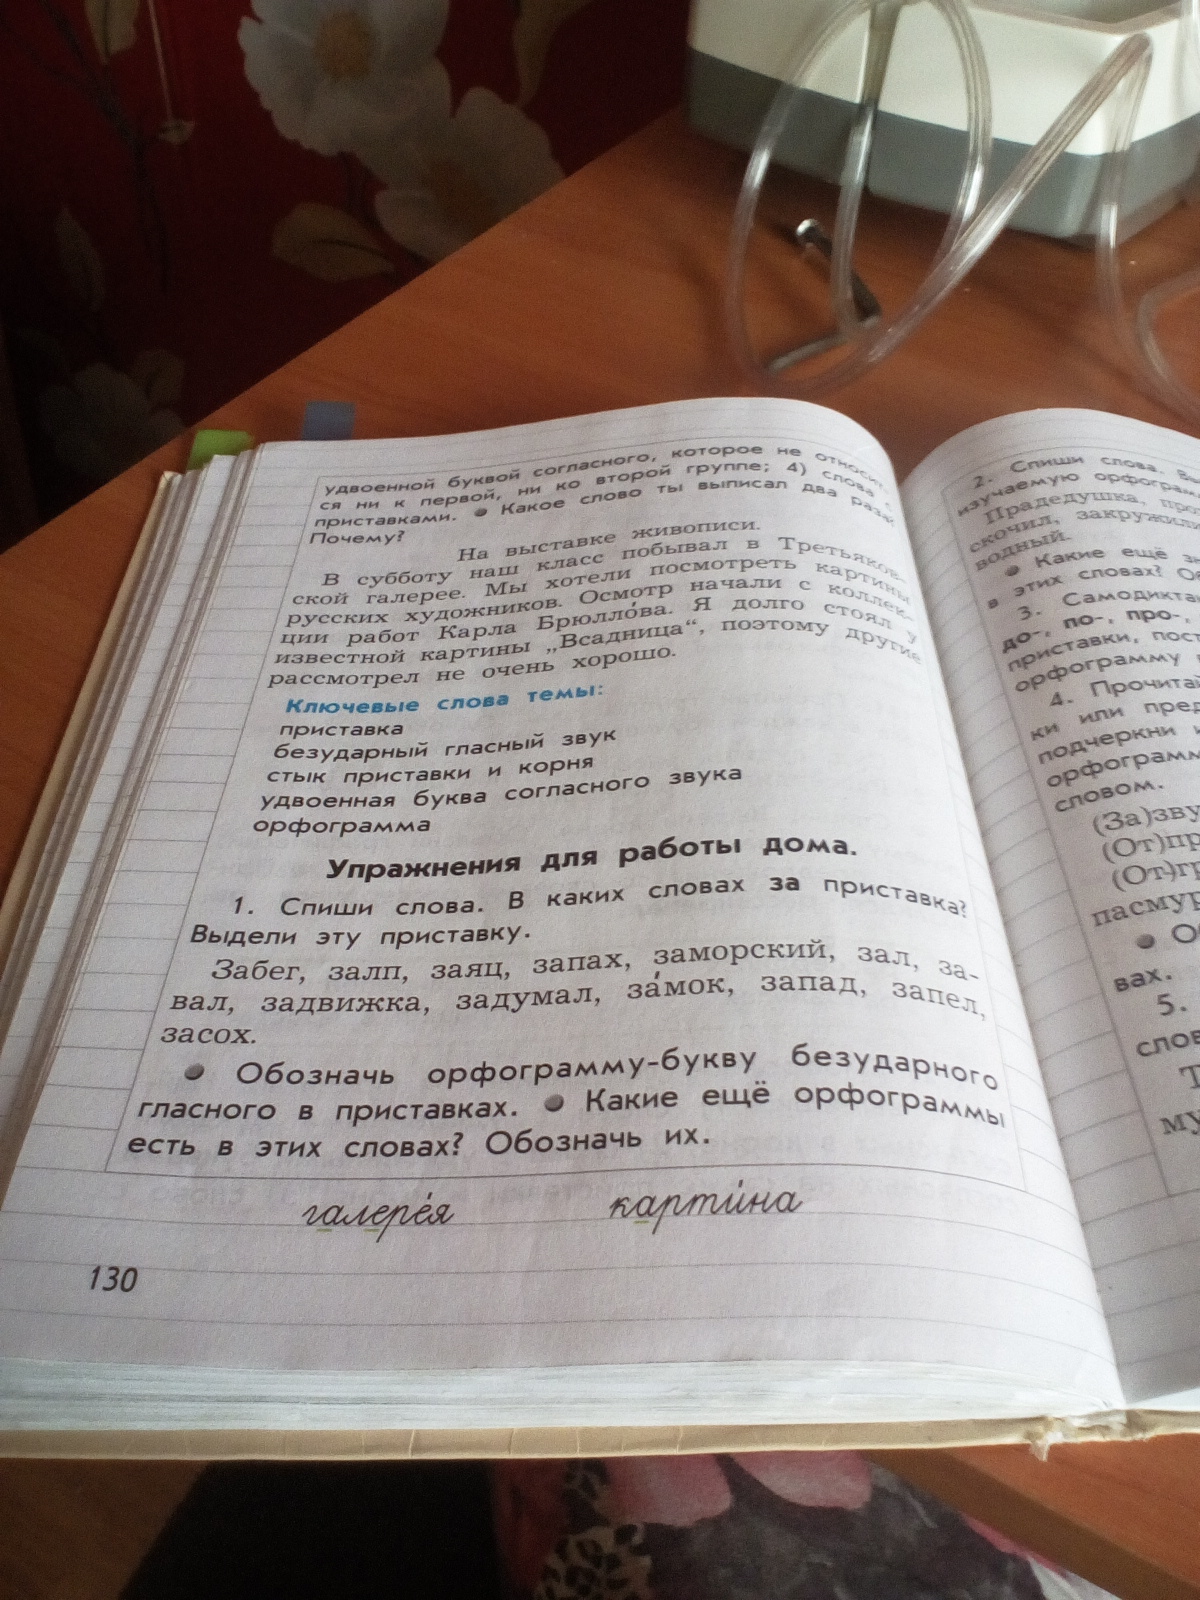 удвоенной буквой согласного, которое не относит-
ся ни к первой, ни ко второй группе; 4) слова с
приставками. ● Какое слово ты выписал два раза?
Почему?
На выставке живописи.
В субботу наш класс побывал в Третьяков-
ской галерее. Мы хотели посмотреть картины
русских художников. Осмотр начали с коллек-
ции работ Карла Брюлло́ва. Я долго стоял у
известной картины „Всадница“, поэтому другие
рассмотрел не очень хорошо.
Ключевые слова темы:
приставка
безударный гласный звук
стык приставки и корня
удвоенная буква согласного звука
орфограмма
Упражнения для работы дома.
1. Спиши слова. В каких словах за приставка?
Выдели эту приставку.
Забег, залп, заяц, запах, заморский, зал, за-
вал, задвижка, задумал, за́мок, запад, запел,
засох.
● Обозначь орфограмму-букву безударного
гласного в приставках. ● Какие ещё орфограммы
есть в этих словах? Обозначь их.
галере́я карти́на
130
2. Спиши слова.
изучаемую
Прадедушка,
скочил,
водный.
● Какие ещё
в этих словах?
3.
до-, по-, про-,
приставки,
орфограмму
4.
ки или
подчеркни
словом.
●
вах.
5.